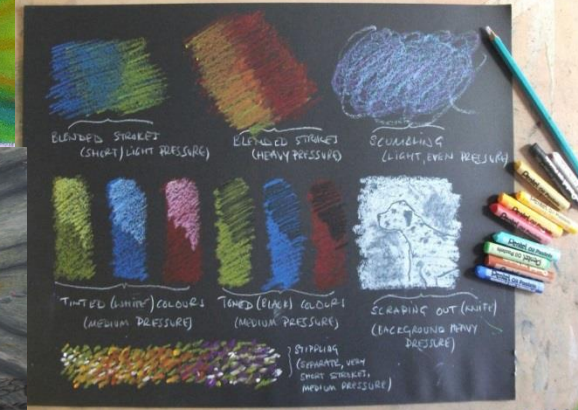 BLENDED STROKES
(SHORT) LIGHT PRESSURE)
BLENDED STROKES
(HEAVY PRESSURE)
SCUMBLING
(LIGHT, EVEN PRESSURE)
TINTED (WHITE) COLOURS
(MEDIUM PRESSURE)
TONED (BLACK) COLOURS
(MEDIUM PRESSURE)
SCRAPING OUT (KNIFE)
(BACKGROUND HEAVY
PRESSURE)
STIPPLING
(SEPARATE, VERY
SHORT STROKES,
MEDIUM PRESSURE)
Pentel Oil Pastels
Pentel
Pentel Oil Pastels